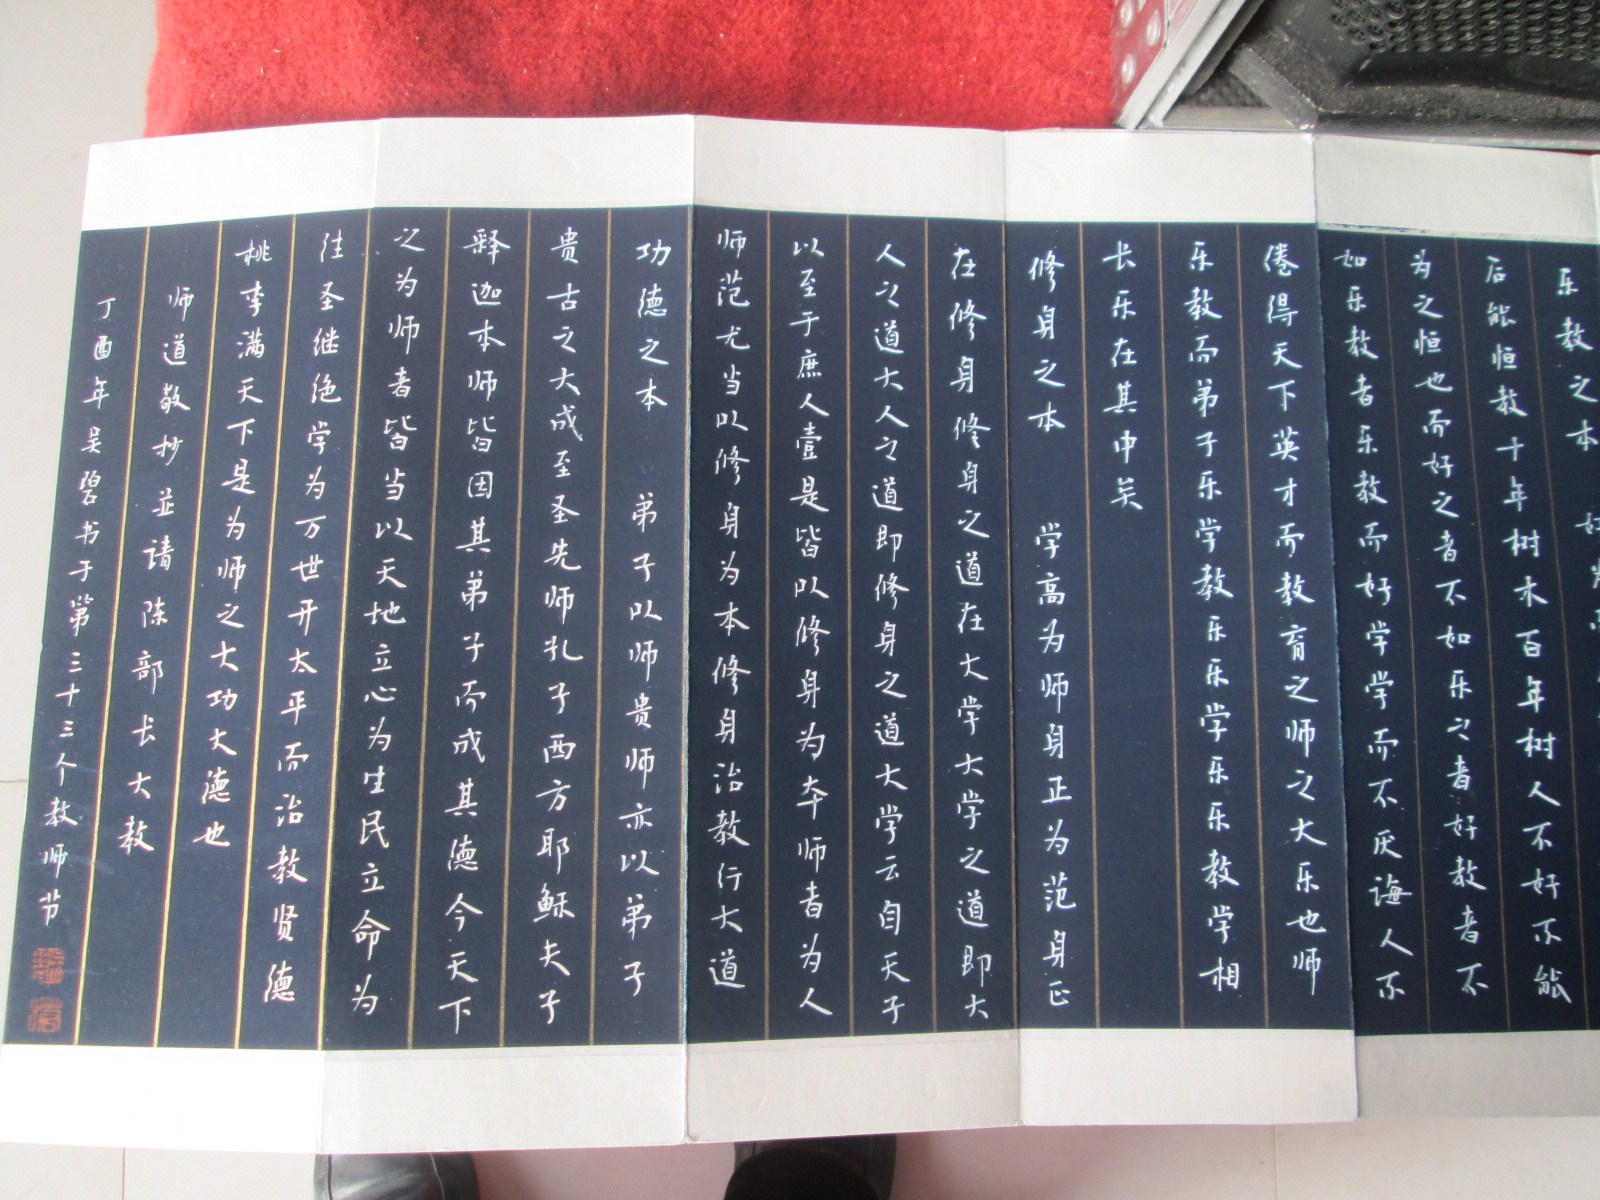 乐教之本
后能恒教十年树木百年树人不好不能
为之恒也而好之者不如乐之者好教者不
如乐教者乐教而好学学而不厌诲人不
倦得天下英才而教育之师之大乐也师
乐教而弟子乐学教乐乐学乐乐教学相
长乐在其中矣
修身之本 学高为师身正为范身正
在修身修身之道在大学大学之道即大
人之道大人之道即修身之道大学云自天子
以至于庶人壹是皆以修身为本师者为人
师范尤当以修身为本修身治教行大道
功德之本 弟子以师贵师亦以弟子
贵古之大成至圣先师孔子西方耶稣夫子
释迦本师皆因其弟子而成其德今天下
之为师者皆当以天地立心为生民立命为
往圣继绝学为万世开太平而治教贤德
桃李满天下是为师之大功大德也
师道敬抄并请陈部长大教
丁酉年吴碧书于第三十三个教师节